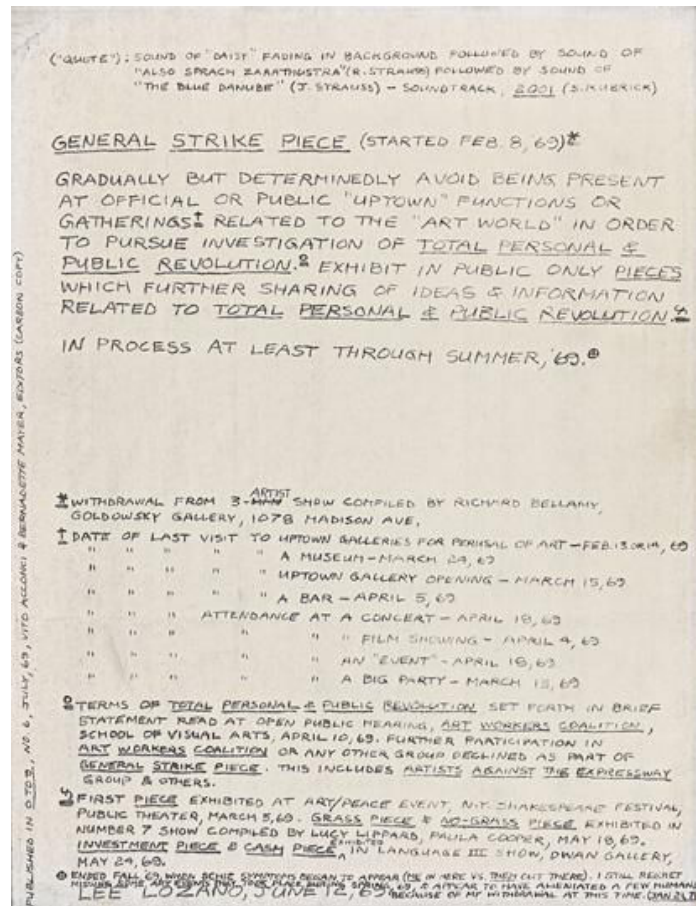 ("QUOTE"): SOUND OF "DAISY" FADING IN BACKGROUND FOLLOWED BY SOUND OF
"ALSO SPRACH ZARATHUSTRA" (R. STRAUSS) FOLLOWED BY SOUND OF
"THE BLUE DANUBE" (J. STRAUSS) – SOUNDTRACK, 2001 (S. KUBRICK)
GENERAL STRIKE PIECE (STARTED FEB. 8, 69)*
GRADUALLY BUT DETERMINEDLY AVOID BEING PRESENT
AT OFFICIAL OR PUBLIC "UPTOWN" FUNCTIONS OR
GATHERINGS† RELATED TO THE "ART WORLD" IN ORDER
TO PURSUE INVESTIGATION OF TOTAL PERSONAL &
PUBLIC REVOLUTION. EXHIBIT IN PUBLIC ONLY PIECES
WHICH FURTHER SHARING OF IDEAS & INFORMATION
RELATED TO TOTAL PERSONAL & PUBLIC REVOLUTION.
IN PROCESS AT LEAST THROUGH SUMMER, '69.
* WITHDRAWAL FROM 3-MAN ARTIST SHOW COMPILED BY RICHARD BELLAMY,
GOLDOWSKY GALLERY, 1078 MADISON AVE.
† DATE OF LAST VISIT TO UPTOWN GALLERIES FOR PERUSAL OF ART – FEB. 13 OR 14, 69
" " " " " A MUSEUM – MARCH 24, 69
" " " " " UPTOWN GALLERY OPENING – MARCH 15, 69
" " " " " A BAR – APRIL 5, 69
" " " ATTENDANCE AT A CONCERT – APRIL 18, 69
" " " " " " FILM SHOWING – APRIL 4, 69
" " " " " AN "EVENT" – APRIL 18, 69
" " " " " A BIG PARTY – MARCH 15, 69
TERMS OF TOTAL PERSONAL & PUBLIC REVOLUTION SET FORTH IN BRIEF
STATEMENT READ AT OPEN PUBLIC HEARING, ART WORKERS COALITION,
SCHOOL OF VISUAL ARTS, APRIL 10, 69. FURTHER PARTICIPATION IN
ART WORKERS COALITION OR ANY OTHER GROUP DECLINED AS PART OF
GENERAL STRIKE PIECE. THIS INCLUDES ARTISTS AGAINST THE EXPRESSWAY
GROUP & OTHERS.
FIRST PIECE EXHIBITED AT ART/PEACE EVENT, N.Y. SHAKESPEARE FESTIVAL,
PUBLIC THEATER, MARCH 5, 69. GRASS PIECE & NO-GRASS PIECE EXHIBITED IN
NUMBER 7 SHOW COMPILED BY LUCY LIPPARD, PAULA COOPER, MAY 18, 69.
INVESTMENT PIECE & CASH PIECE EXHIBITED IN LANGUAGE III SHOW, DWAN GALLERY,
MAY 24, 69.
ENDED FALL 69, WHEN SCHIZ SYMPTOMS BEGAN TO APPEAR (ME IN HERE VS. THEM OUT THERE). I STILL REGRET
MISSING SOME ART EVENTS THAT TOOK PLACE DURING SPRING, 69, & APPEAR TO HAVE ALIENATED A FEW HUMANS
BECAUSE OF MY WITHDRAWAL AT THIS TIME.
LEE LOZANO, JUNE 12, 69
PUBLISHED IN 0 TO 9, NO. 6, JULY, 69, VITO ACCONCI & BERNADETTE MAYER, EDITORS (CARBON COPY)